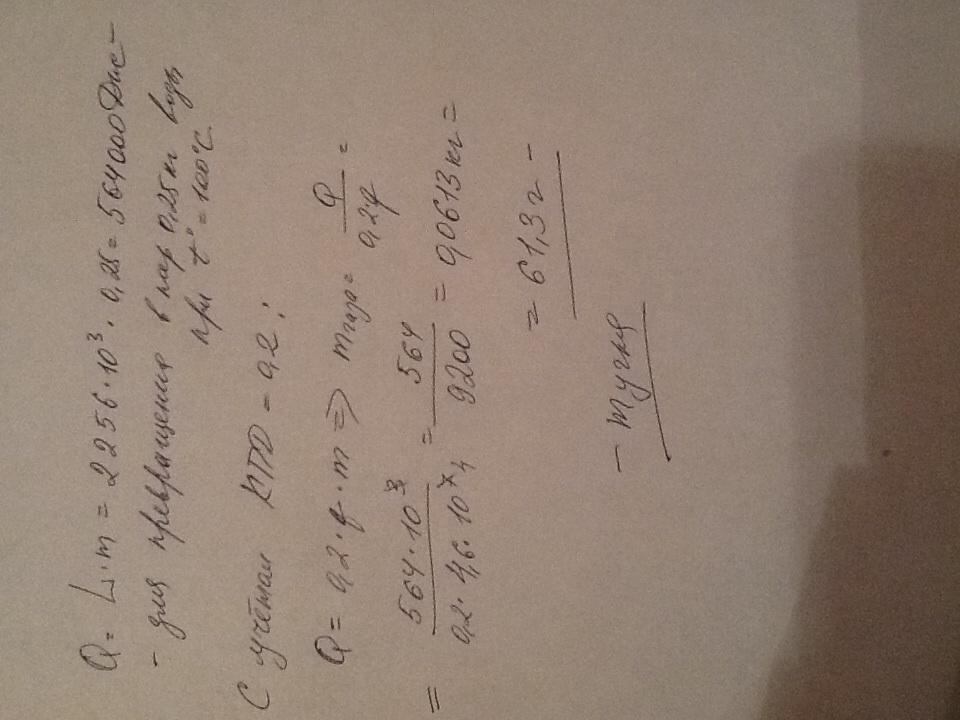 Q = L·m = 2256·10³·0,25 = 564000 Дж –
– для превращения в пар 0,25 кг воды
при t° = 100°C
С учётом КПД = 0,2 :
Q = 0,2·q·m ⇒ m газа = Q / 0,2q =
= 564·10³ / 0,2·4,6·10⁷ = 564 / 9200 = 0,0613 кг =
= 61,3 г –